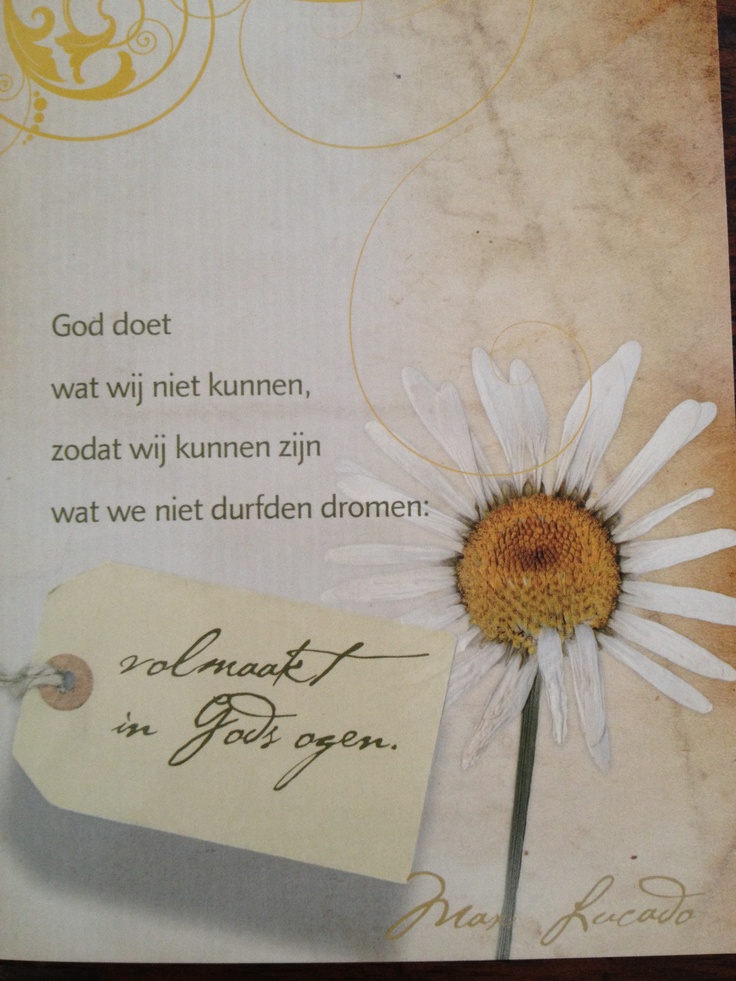 God doet
wat wij niet kunnen,
zodat wij kunnen zijn
wat we niet durfden dromen:
volmaakt
in Gods ogen.
Max Lucado